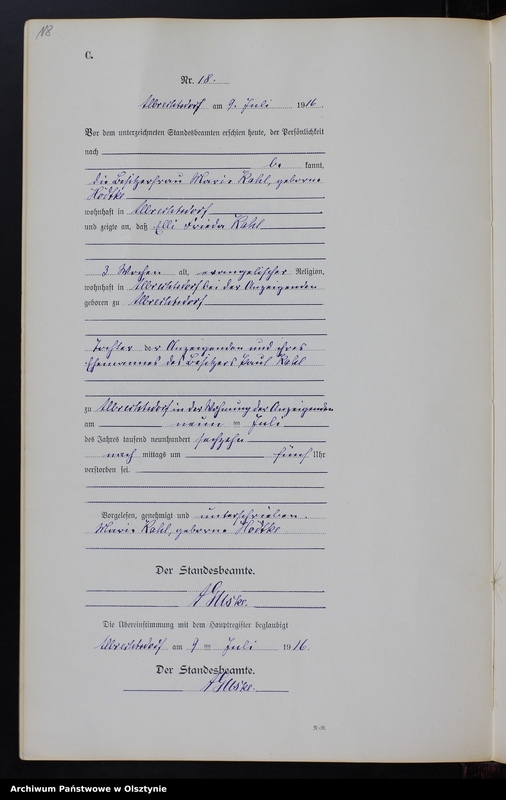 C.
Nr. 18.
Albrechtsdorf am 9. Juli 1916.
Vor dem unterzeichneten Standesbeamten erschien heute, der Persönlichkeit
nach
be kannt,
die Besitzerfrau Marie Kahl, geborene
Hödtke
wohnhaft in Albrechtsdorf
und zeigte an, daß Elli Frieda Kahl
3 Wochen alt, evangelischer Religion,
wohnhaft in Albrechtsdorf bei der Anzeigenden
geboren zu Albrechtsdorf
Tochter der Anzeigenden und ihres
Ehemannes des Besitzers Paul Kahl
zu Albrechtsdorf in der Wohnung der Anzeigenden
am neun ten Juli
des Jahres tausend neunhundert sechzehn
nach mittags um fünf Uhr
verstorben sei.
Vorgelesen, genehmigt und unterschrieben.
Marie Kahl, geborene Hödtke
Der Standesbeamte.
Die Übereinstimmung mit dem Hauptregister beglaubigt
Albrechtsdorf am 9 ten Juli 1916.
Der Standesbeamte.
Archiwum Państwowe w Olsztynie